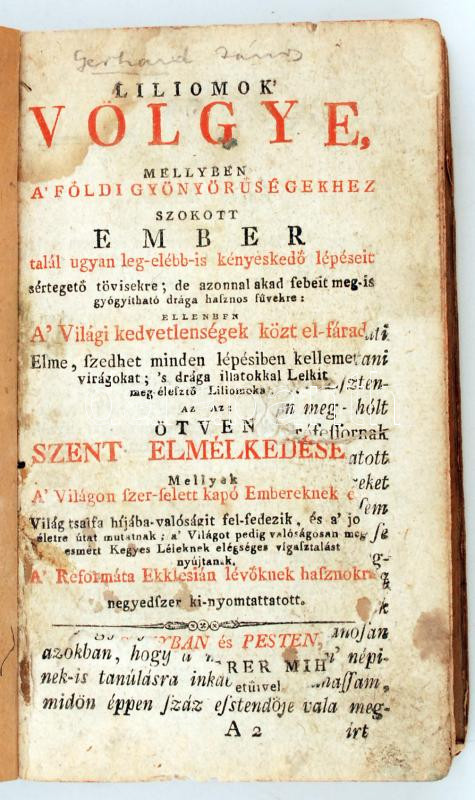 Gerhard János
LILIOMOK'
VÖLGYE,
MELLYBEN
A' FÖLDI GYÖNYÖRŰSÉGEKHEZ
SZOKOTT
EMBER
talál ugyan leg-elébb-is kényeskedő lépéseit
sértegető tövisekre; de azonnal akad sebeit meg-is
gyógyítható drága hasznos füvekre:
ELLENBEN
A' Világi kedvetlenségek közt el-fárad
Elme, szedhet minden lépésiben kelleme
virágokat; 's drága illatokkal Lelkit
meg-élesztő Liliomoka
AZ AZ:
ÖTVEN
SZENT ELMÉLKEDÉSE
Mellyek
A' Világon szer-felett kapó Embereknek e
Világ tsalfa híjába-valóságit fel-fedezik, és a' jo
életre útat mutatnak; a' Világot pedig valóságosan meg
esmért Kegyes Léleknek elégséges vígasztalást
nyújtanak.
A' Reformáta Ekklesián lévőknek hasznokra
negyedszer ki-nyomtattatott.
ati
ani
eszten-
n meg-hólt
rófessornak
atott
eket
sem
se
g-
k
YBAN és PESTEN,
anoján
azokban, hogy a
RER MIH
népi-
nek-is tanúlásra inká
etűivel
hassam,
midőn éppen száz esstendője vala meg-
A 2
írt